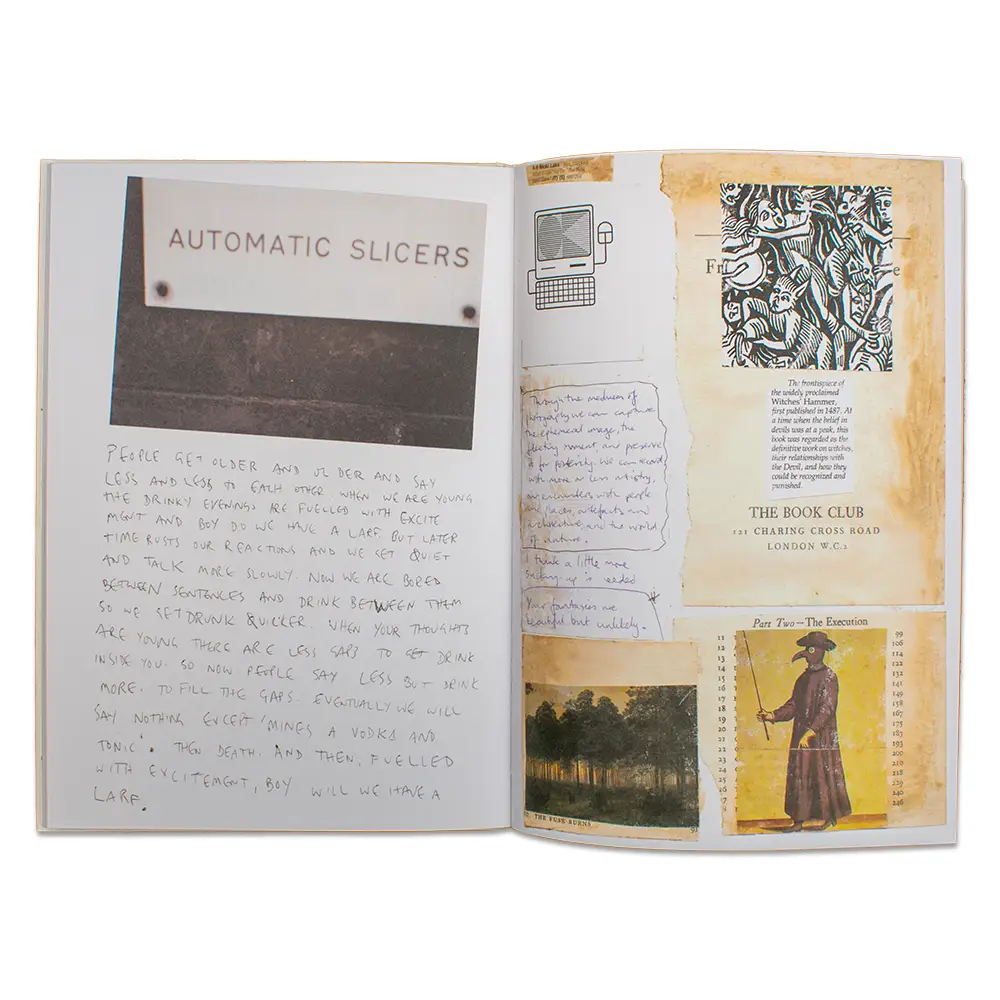 AUTOMATIC SLICERS
PEOPLE GET OLDER AND OLDER AND SAY
LESS AND LESS TO EACH OTHER. WHEN WE ARE YOUNG
THE DRINKY EVENINGS ARE FUELLED WITH EXCITE
MENT AND BOY DO WE HAVE A LARF. BUT LATER
TIME RUSTS OUR REACTIONS AND WE GET QUIET
AND TALK MORE SLOWLY. NOW WE ARE BORED
BETWEEN SENTENCES AND DRINK BETWEEN THEM
SO WE GET DRUNK QUICKER. WHEN YOUR THOUGHTS
ARE YOUNG THERE ARE LESS GAPS TO GET DRINK
INSIDE YOU. SO NOW PEOPLE SAY LESS BUT DRINK
MORE. TO FILL THE GAPS. EVENTUALLY WE WILL
SAY NOTHING EXCEPT 'MINES A VODKA AND
TONIC'. THEN DEATH. AND THEN, FUELLED
WITH EXCITEMENT, BOY WILL WE HAVE A
LARF.
Through the medium of
photography we can capture
the ephemeral image, the
fleeting moment, and preserve
it for posterity. We can record
with more or less artistry,
our encounters with people
and places, artefacts and
architecture, and the world
of nature.
I think a little more
sucking-up is needed
Your fantasies are
beautiful but unlikely.
THE FUSE BURNS
91
Fr
e
The frontispiece of
the widely proclaimed
Witches' Hammer,
first published in 1487. At
a time when the belief in
devils was at a peak, this
book was regarded as the
definitive work on witches,
their relationships with
the Devil, and how they
could be recognized and
punished.
THE BOOK CLUB
121 CHARING CROSS ROAD
LONDON W.C.2
Part Two—The Execution
11 99
12 106
13 114
14 122
15 132
16 141
17 149
18 158
19 167
20 175
21 185
22 193
23 200
24 210
25 218
26 229
27 240
28 246